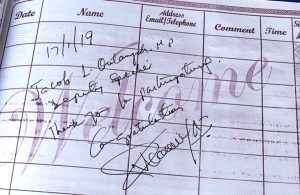 Date Name Address Email/Telephone Comment Time
Welcome
17/1/19
Jacob L. Oulanyah MP
Deputy Speaker
Thank you for participating.
Congratulations